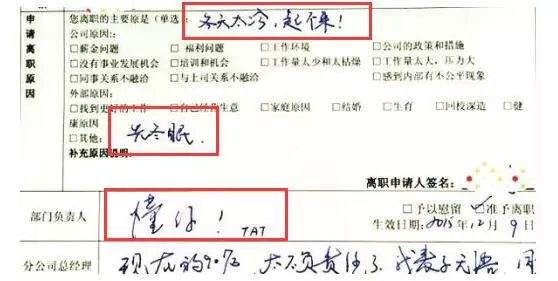 申请离职原因
您离职的主要原是（单选： 冬天太冷，起不来！
公司原因:：
□薪金问题 □福利问题 □工作环境 □公司的政策和措施
□没有事业发展机会 □培训和机会 □工作量太少和太枯燥 □工作量太大、压力大
□同事关系不融洽 □与上司关系不融洽 □感到内部有不公平现象
外部原因:
□找到更好的工作 □自己经营生意 □家庭原因 □结婚 □生育 □回校深造 □健
康原因
□其他: 先冬眠.
补充原因说明:
离职申请人签名:
部门负责人 懂你！ TAT
□予以慰留 ☑准予离职
生效日期: 2015.12月9日
分公司总经理 现在的90后，太不负责任了，